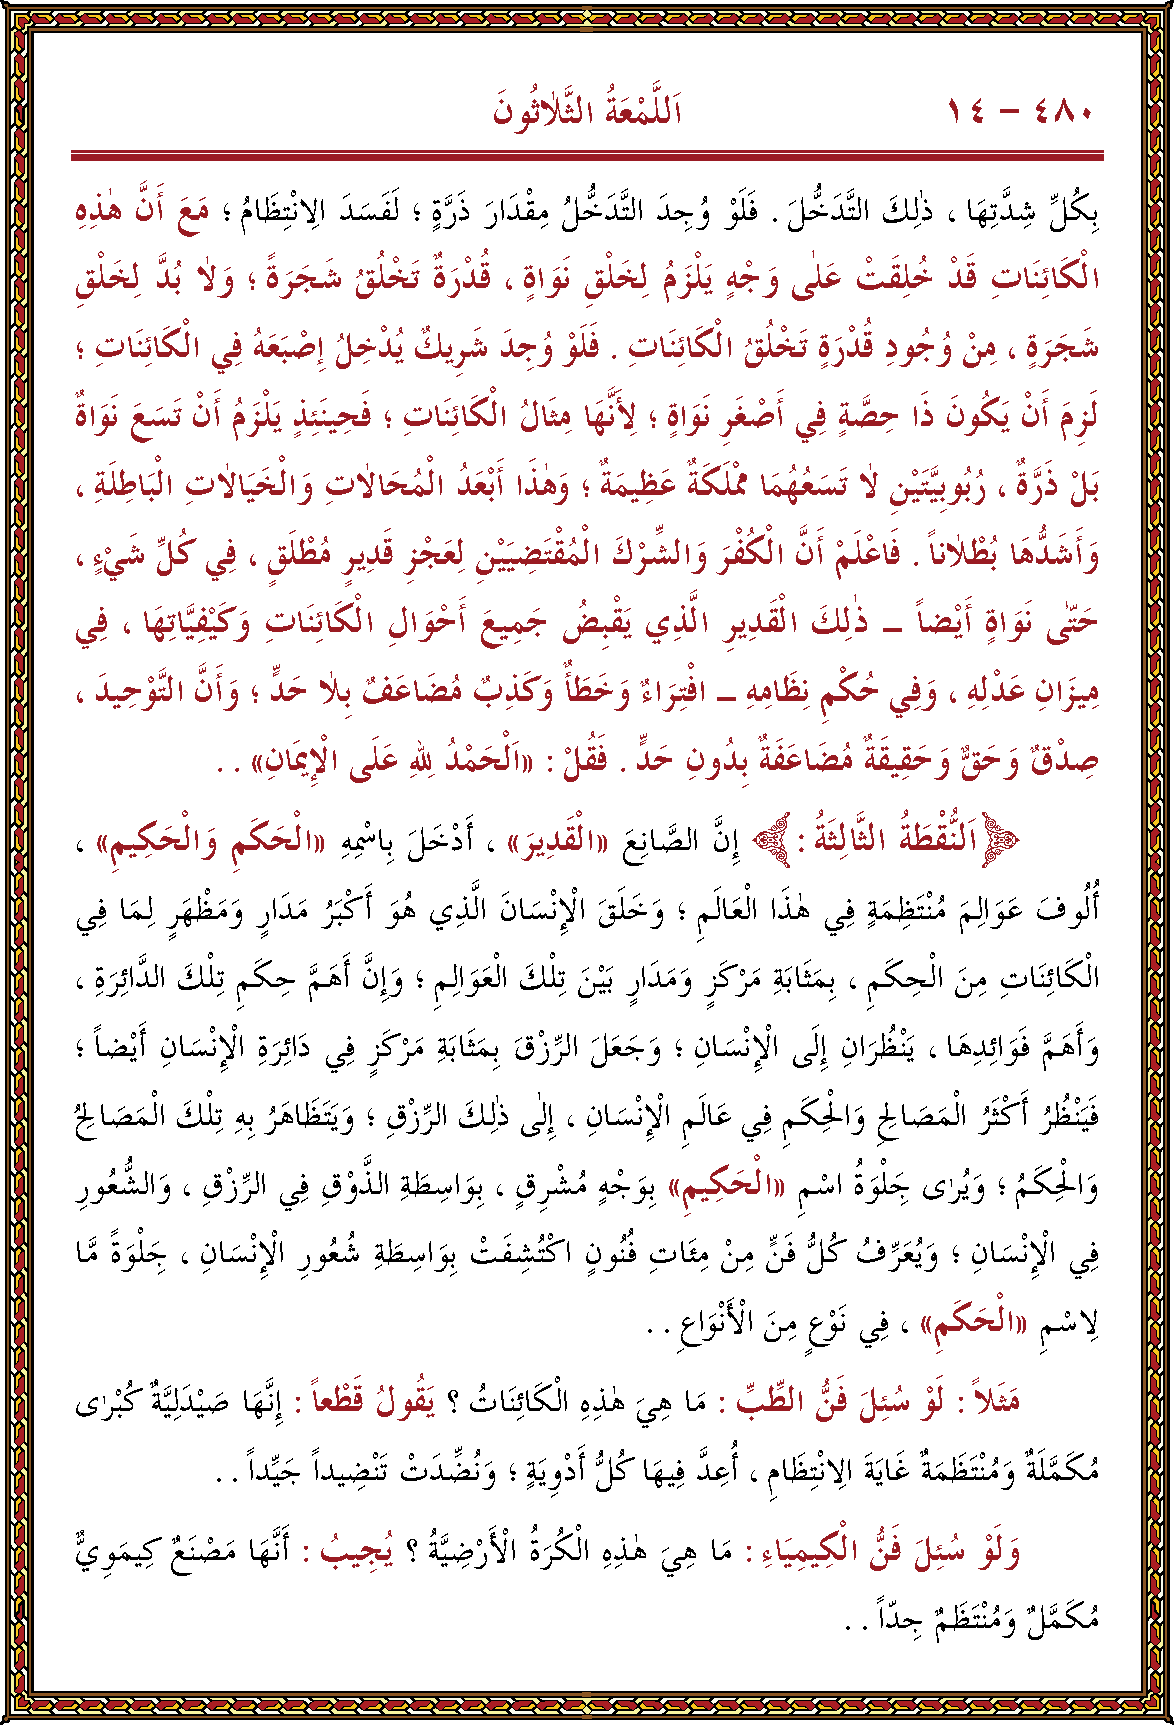 ٤٨٠ – ١٤ اَللَّمْعَةُ الثَّلَاثُونَ
بِكُلِّ شِدَّتِهَا ، ذٰلِكَ التَّدَخُّلَ . فَلَوْ وُجِدَ التَّدَخُّلُ مِقْدَارَ ذَرَّةٍ ؛ لَفَسَدَ الِانْتِظَامُ ؛ مَعَ أَنَّ هٰذِهِ
الْكَائِنَاتِ قَدْ خُلِقَتْ عَلٰى وَجْهٍ يَلْزَمُ لِخَلْقِ نَوَاةٍ ، قُدْرَةٌ تَخْلُقُ شَجَرَةً ؛ وَلَا بُدَّ لِخَلْقِ
شَجَرَةٍ ، مِنْ وُجُودِ قُدْرَةٍ تَخْلُقُ الْكَائِنَاتِ . فَلَوْ وُجِدَ شَرِيكٌ يُدْخِلُ إِصْبَعَهُ فِي الْكَائِنَاتِ ؛
لَزِمَ أَنْ يَكُونَ ذَا حِصَّةٍ فِي أَصْغَرِ نَوَاةٍ ؛ لِأَنَّهَا مِثَالُ الْكَائِنَاتِ ؛ فَحِينَئِذٍ يَلْزَمُ أَنْ تَسَعَ نَوَاةٌ
بَلْ ذَرَّةٌ ، رُبُوبِيَّتَيْنِ لَا تَسَعُهُمَا مَمْلَكَةٌ عَظِيمَةٌ ؛ وَهٰذَا أَبْعَدُ الْمُحَالَاتِ وَالْخَيَالَاتِ الْبَاطِلَةِ ،
وَأَشَدُّهَا بُطْلَاناً . فَاعْلَمْ أَنَّ الْكُفْرَ وَالشِّرْكَ الْمُقْتَضِيَيْنِ لِعَجْزِ قَدِيرٍ مُطْلَقٍ ، فِي كُلِّ شَيْءٍ ،
حَتّٰى نَوَاةٍ أَيْضاً – ذٰلِكَ الْقَدِيرِ الَّذِي يَقْبِضُ جَمِيعَ أَحْوَالِ الْكَائِنَاتِ وَكَيْفِيَّاتِهَا ، فِي
مِيزَانِ عَدْلِهِ ، وَفِي حُكْمِ نِظَامِهِ – افْتِرَاءٌ وَخَطَأٌ وَكَذِبٌ مُضَاعَفٌ بِلَا حَدٍّ ؛ وَأَنَّ التَّوْحِيدَ ،
صِدْقٌ وَحَقٌّ وَحَقِيقَةٌ مُضَاعَفَةٌ بِدُونِ حَدٍّ . فَقُلْ : «اَلْحَمْدُ لِلّٰهِ عَلَى الْإِيمَانِ» . .
اَلنُّقْطَةُ الثَّالِثَةُ : إِنَّ الصَّانِعَ «الْقَدِيرَ» ، أَدْخَلَ بِاسْمِهِ «الْحَكَمِ وَالْحَكِيمِ» ،
أُلُوفَ عَوَالِمَ مُنْتَظِمَةٍ فِي هٰذَا الْعَالَمِ ؛ وَخَلَقَ الْإِنْسَانَ الَّذِي هُوَ أَكْبَرُ مَدَارٍ وَمَظْهَرٍ لِمَا فِي
الْكَائِنَاتِ مِنَ الْحِكَمِ ، بِمَثَابَةِ مَرْكَزٍ وَمَدَارٍ بَيْنَ تِلْكَ الْعَوَالِمِ ؛ وَإِنَّ أَهَمَّ حِكَمِ تِلْكَ الدَّائِرَةِ ،
وَأَهَمَّ فَوَائِدِهَا ، يَنْظُرَانِ إِلَى الْإِنْسَانِ ؛ وَجَعَلَ الرِّزْقَ بِمَثَابَةِ مَرْكَزٍ فِي دَائِرَةِ الْإِنْسَانِ أَيْضاً ؛
فَيَنْظُرُ أَكْثَرُ الْمَصَالِحِ وَالْحِكَمِ فِي عَالَمِ الْإِنْسَانِ ، إِلٰى ذٰلِكَ الرِّزْقِ ؛ وَيَتَظَاهَرُ بِهِ تِلْكَ الْمَصَالِحُ
وَالْحِكَمُ ؛ وَيُرٰى جَلْوَةُ اسْمِ «الْحَكِيمِ» بِوَجْهٍ مُشْرِقٍ ، بِوَاسِطَةِ الذَّوْقِ فِي الرِّزْقِ ، وَالشُّعُورِ
فِي الْإِنْسَانِ ؛ وَيُعَرِّفُ كُلُّ فَنٍّ مِنْ مِئَاتِ فُنُونٍ اكْتُشِفَتْ بِوَاسِطَةِ شُعُورِ الْإِنْسَانِ ، جَلْوَةً مَّا
لِاسْمِ «الْحَكَمِ» ، فِي نَوْعٍ مِنَ الْأَنْوَاعِ . .
مَثَلاً : لَوْ سُئِلَ فَنُّ الطِّبِّ : مَا هِيَ هٰذِهِ الْكَائِنَاتُ ؟ يَقُولُ قَطْعاً : إِنَّهَا صَيْدَلِيَّةٌ كُبْرٰى
مُكَمَّلَةٌ وَمُنْتَظَمَةٌ غَايَةَ الِانْتِظَامِ ، أُعِدَّ فِيهَا كُلُّ أَدْوِيَةٍ ؛ وَنُضِّدَتْ تَنْضِيداً جَيِّداً . .
وَلَوْ سُئِلَ فَنُّ الْكِيمِيَاءِ : مَا هِيَ هٰذِهِ الْكُرَةُ الْأَرْضِيَّةُ ؟ يُجِيبُ : أَنَّهَا مَصْنَعٌ كِيمَوِيٌّ
مُكَمَّلٌ وَمُنْتَظَمٌ جِدّاً . .